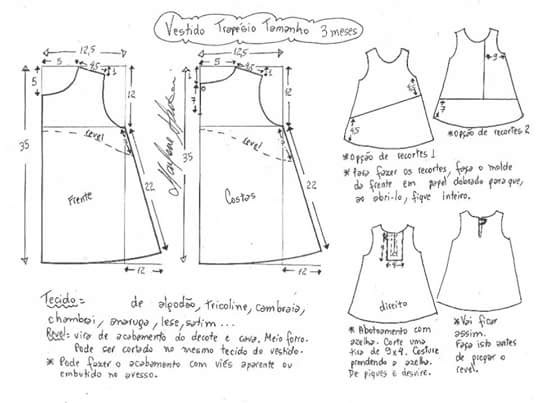 Vestido Trapésio Tamanho 3 meses
12,5
5
4,5
1
5
12
35
revel
22
Frente
12
Marlene Mukai
12,5
5
4,5
1
12
35
revel
22
Costas
12
4,5
*Opção de recortes 1
3
7
*Opção de recortes 2
*Para fazer os recortes, faça o molde
da frente em papel dobrado para que,
ao abri-lo, fique inteiro.
direito
*Abotoamento com
azelha. Corte uma
tira de 9x4. Costure
prendendo a azelha.
De piques e desvire.
*Vai ficar
assim.
Faça isto antes
de pregar o
revel.
Tecido= de algodão, tricoline, cambraia,
chambrai, anaruga, lese, satim...
Revel: vira de acabamento do decote e cava. Meio forro.
Pode ser cortado no mesmo tecido do vestido.
* Pode fazer o acabamento com viés aparente ou
embutido no avesso.